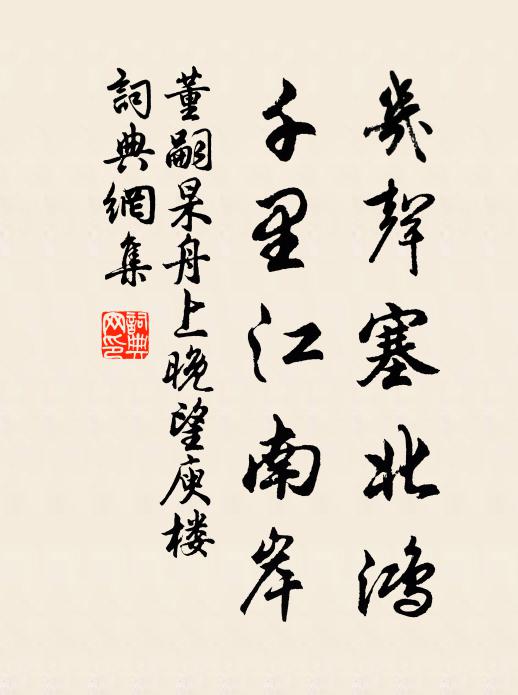 幾聲塞北鴻
千里江南岸
董嗣杲舟上晚望庾楼
詞典網集
詞典网印